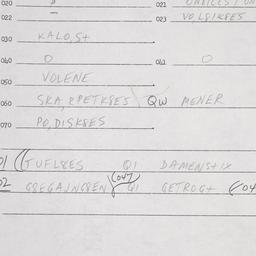 020
021
022
023 VOLSIKSES
030 KALO,S+
040 O 041 O
050 VOLENE
060 SKA,RPETKSES QW MENER
070 PO,DISKSES
01 ((TUFLSES Q1 DAMENS+IX
02 GSEGAJNGSEN (047) Q1 GETROG+ (04